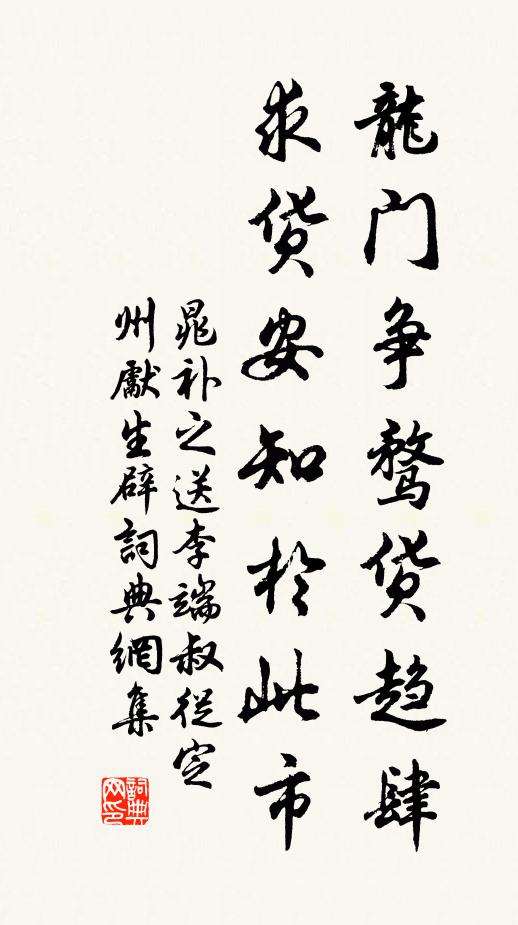 龍门争骛货趋肆
求货安知於此市
晁补之送李端叔從定
州獻生辟詞典網集
詞典网印